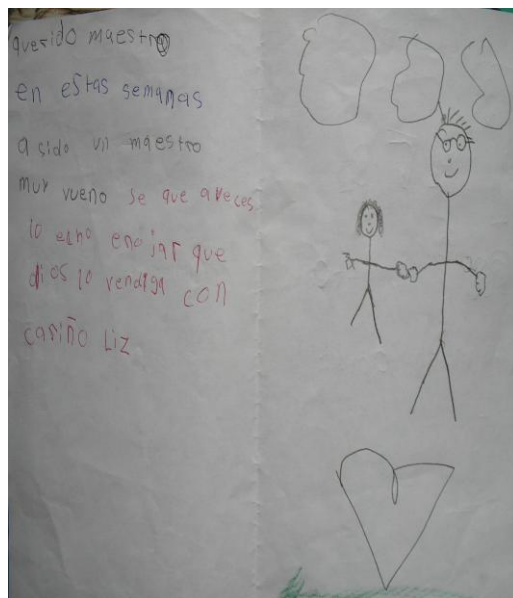 querido maestro
en estas semanas
a sido un maestro
muy vueno se que aveces
lo ehno enojar que
dios lo vendiga con
cariño Liz